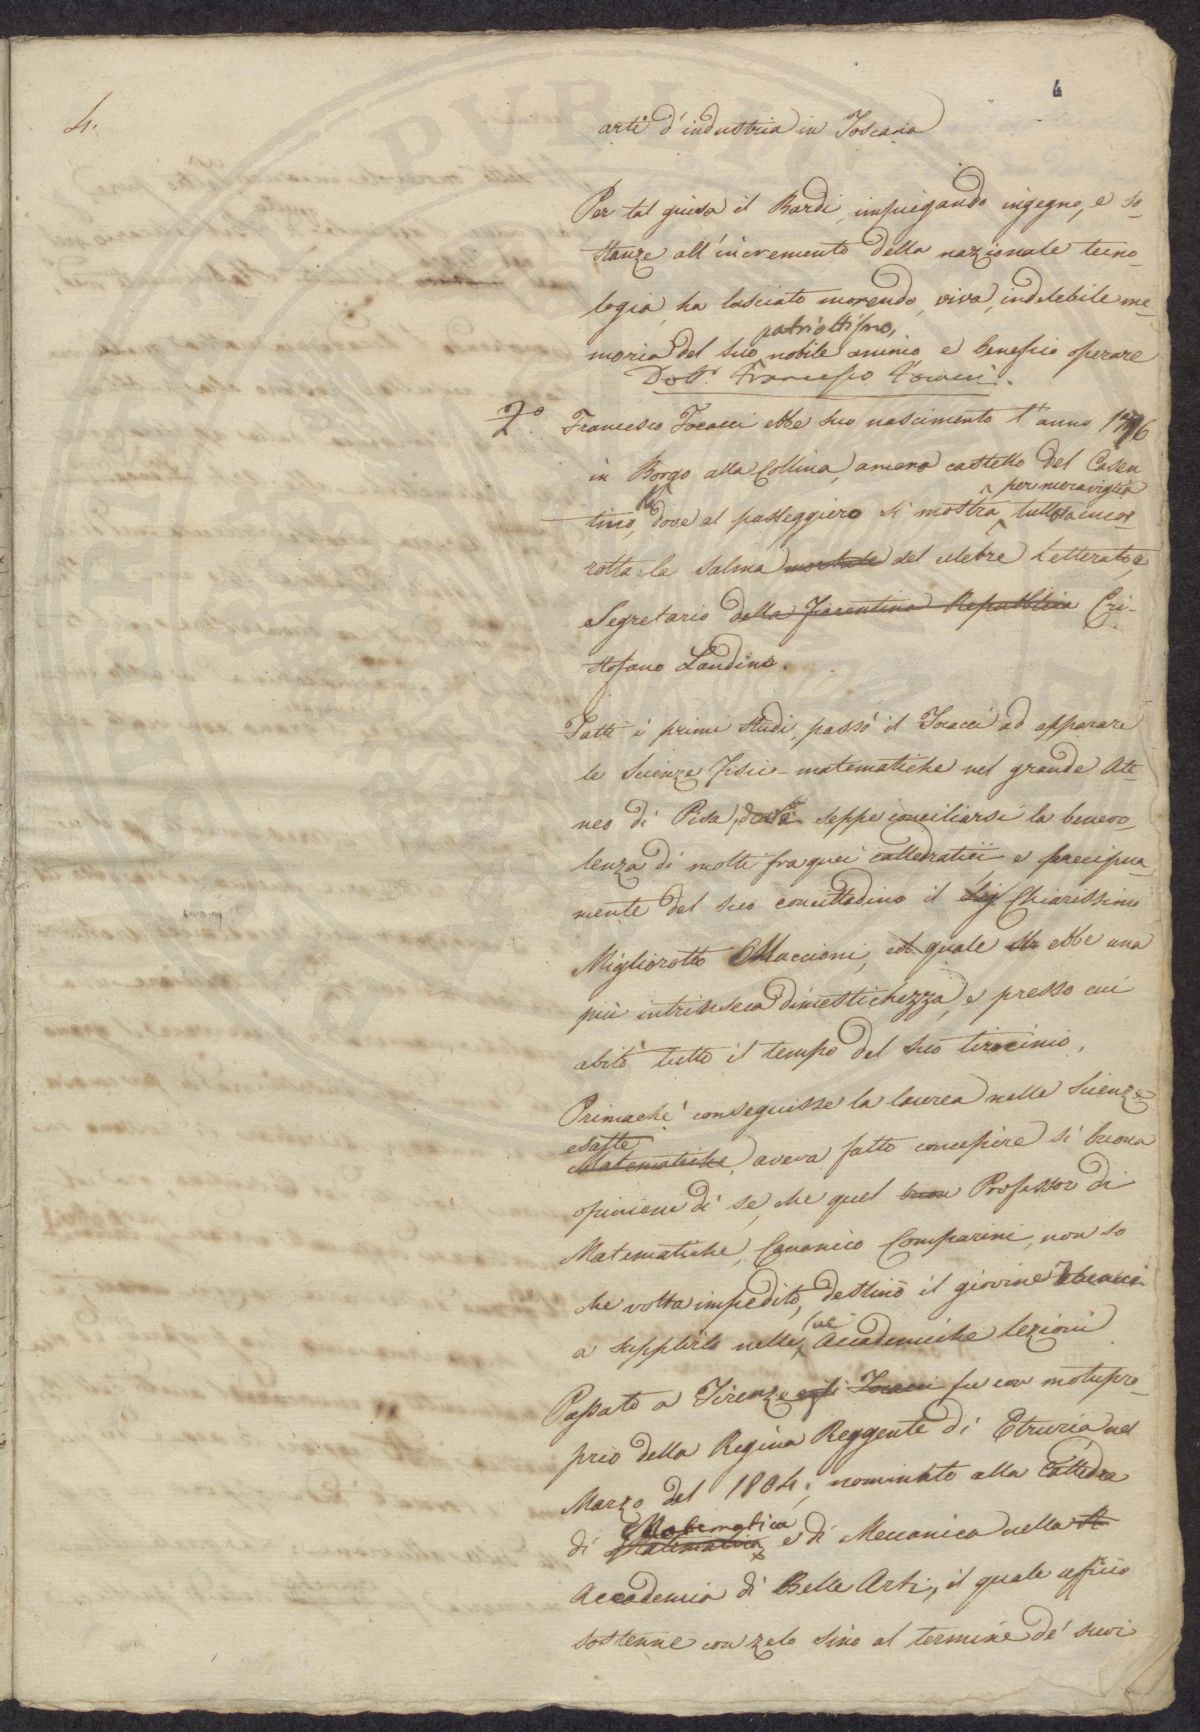 4.
6
arti d'industria in Toscana
Per tal guisa il Bardi, impiegando ingegno, e so-
stanze all'incremento della nazionale tecno-
logia, ha lasciato morendo, viva, indelebile me-
patriottismo,
moria del suo nobile animo e benefico operare
Dott. Francesco Focacci.
2.° Francesco Focacci ebbe suo nascimento l'anno 1776
in Borgo alla Collina, ameno castello del Casen
per meraviglia
tino, dove al passeggiero si mostra tutt'ora incor-
rotta la salma mortale del celebre Letterato, e
Segretario della Fiorentina Repubblica Cri-
stofano Landino.
Fatti i primi studi, passò il Focacci ad apparare
le Scienze Fisico-matematiche nel grande Ate-
neo di Pisa, dove seppe conciliarsi la benevo-
lenza di molti fra quei cattedratici e precipua-
mente del suo concittadino il Sig. Chiarissimo
Migliorotto Maccioni, col quale ebbe una
più intrinseca dimestichezza, e presso cui
abitò tutto il tempo del suo tirocinio.
Primachè conseguisse la laurea nelle Scienze
esatte
Matematiche, aveva fatto concepire sì buona
opinione di se, che quel buon Professor di
Matematiche, Canonico Comparini, non so
che volta impedito, destinò il giovine Focacci
sue
a supplirlo nelle Accademiche lezioni
Passato a Firenze egli Focacci fu con motupro-
prio della Regina Reggente di Etruria nel
Marzo del 1804; nominato alla Cattedra
Matematica
di Matematica e di Meccanica nella
Accademia di Belle Arti, il quale ufficio
sostenne con zelo sino al termine de' suoi